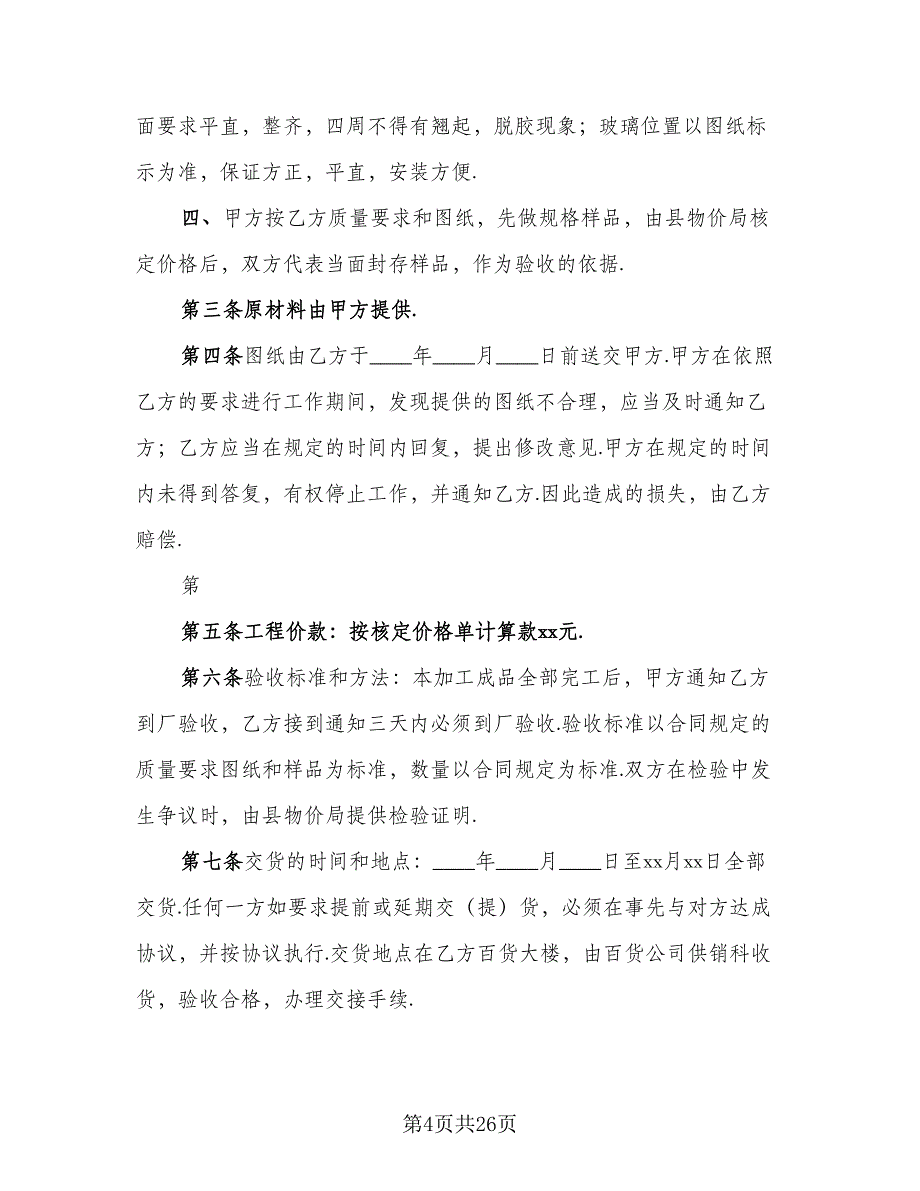 面要求平直，整齐，四周不得有翘起，脱胶现象；玻璃位置以图纸标
示为准，保证方正，平直，安装方便.
四、甲方按乙方质量要求和图纸，先做规格样品，由县物价局核
定价格后，双方代表当面封存样品，作为验收的依据.
第三条原材料由甲方提供.
第四条图纸由乙方于____年____月____日前送交甲方.甲方在依照
乙方的要求进行工作期间，发现提供的图纸不合理，应当及时通知乙
方；乙方应当在规定的时间内回复，提出修改意见.甲方在规定的时间
内未得到答复，有权停止工作，并通知乙方.因此造成的损失，由乙方
赔偿.
第
第五条工程价款：按核定价格单计算款xx元.
第六条验收标准和方法：本加工成品全部完工后，甲方通知乙方
到厂验收，乙方接到通知三天内必须到厂验收.验收标准以合同规定的
质量要求图纸和样品为标准，数量以合同规定为标准.双方在检验中发
生争议时，由县物价局提供检验证明.
第七条交货的时间和地点：____年____月____日至xx月xx日全部
交货.任何一方如要求提前或延期交（提）货，必须在事先与对方达成
协议，并按协议执行.交货地点在乙方百货大楼，由百货公司供销科收
货，验收合格，办理交接手续.
第4页共26页